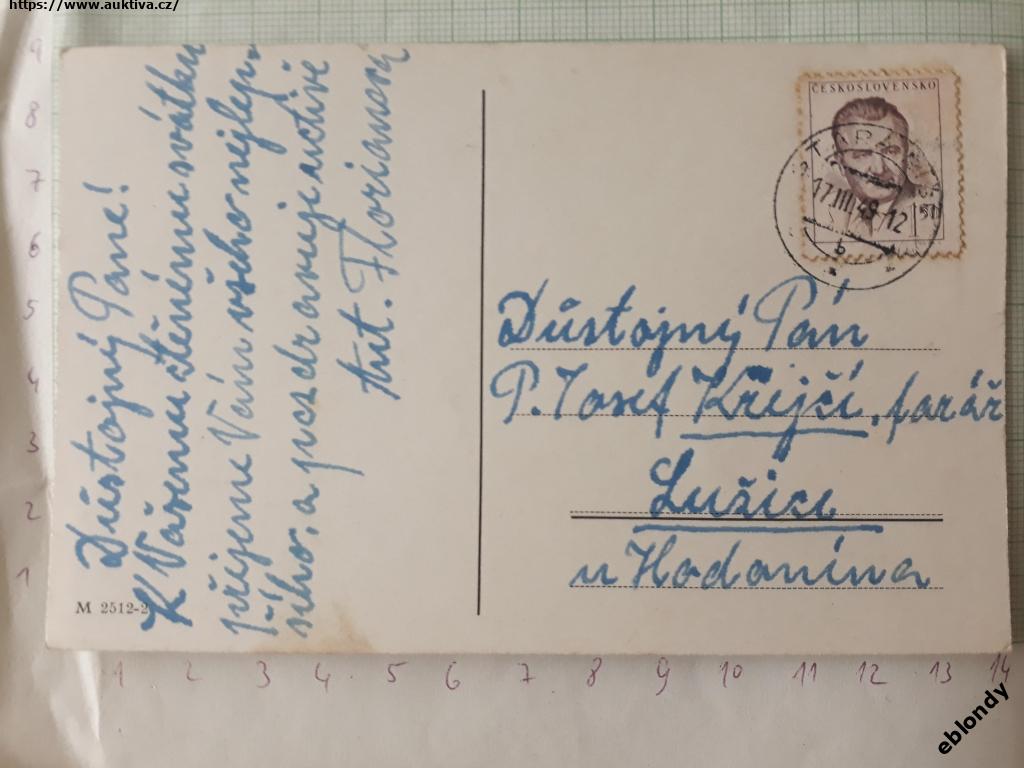 https://www.auktiva.cz/
Důstojný Pane!
K Vášemu ctěnému svátku
přejeme Vám všeho nejlep-
šího, a pozdravuje uctivě
Ant. Florianovi
M 2512-2
ČESKOSLOVENSKO
17.III.49-12
b
Důstojný Pán
P. Josef Křejčí, farář
Lužice
u Hodonína
9
8
7
6
5
4
3
2
1
1 2 3 4 5 6 7 8 9 10 11 12 13 14
eblondy